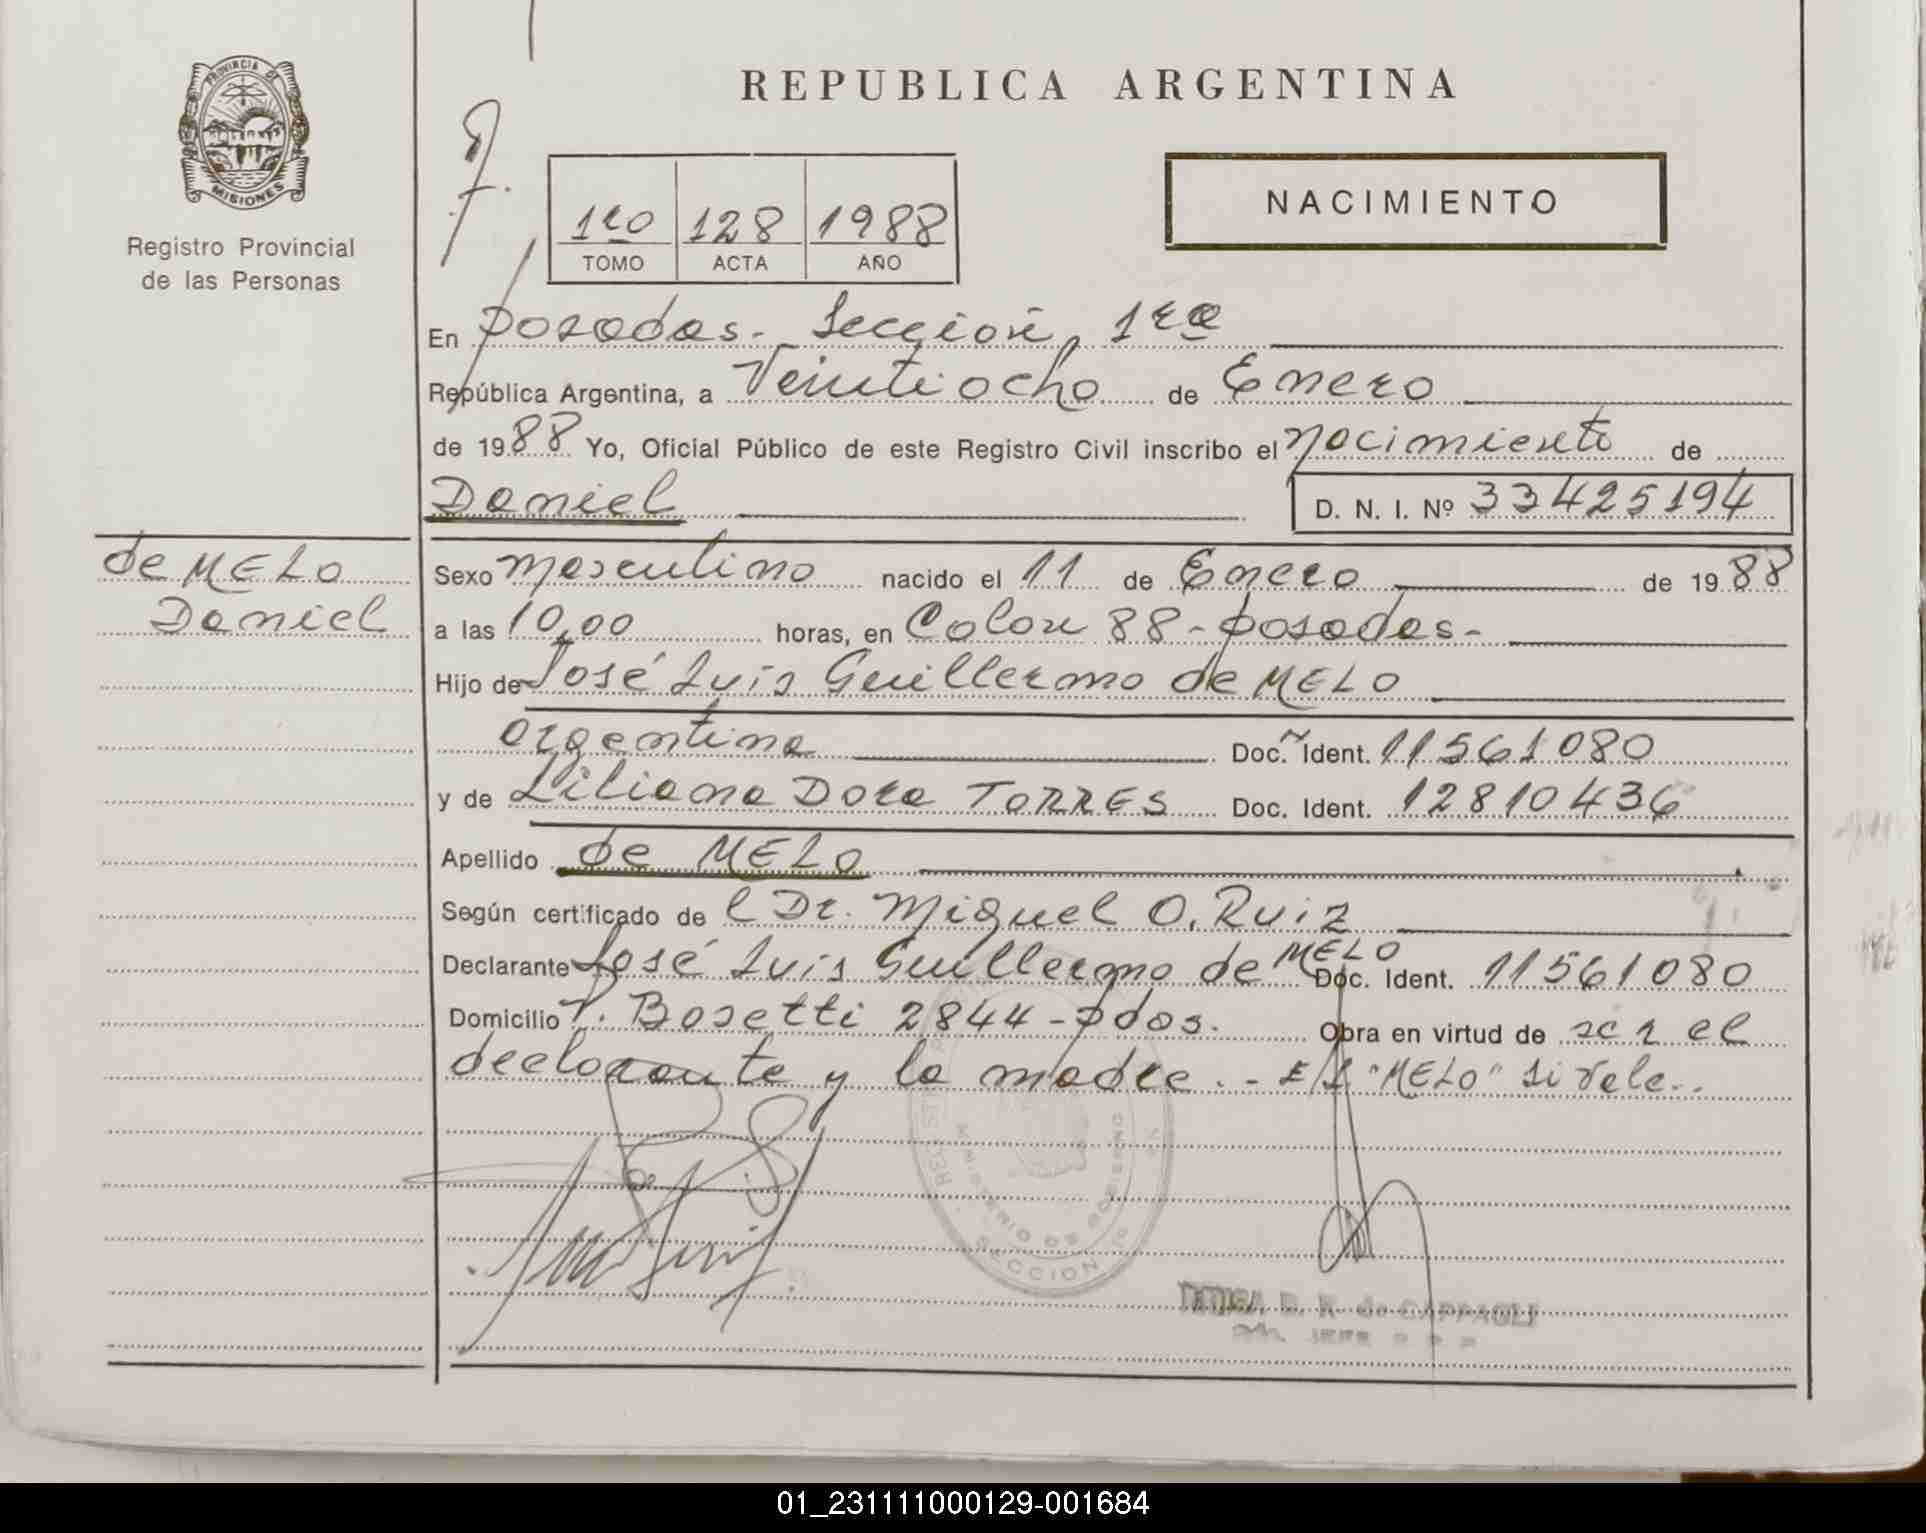 REPUBLICA ARGENTINA
PROVINCIA DE
MISIONES
Registro Provincial
de las Personas
NACIMIENTO
1ro 128 1988
TOMO ACTA AÑO
En Posadas - Sección 1ra
República Argentina, a Veintiocho de Enero
de 1988 Yo, Oficial Público de este Registro Civil inscribo el nacimiento de
Daniel D. N. I. Nº 33425194
de MELO
Daniel
Sexo masculino nacido el 11 de Enero de 1988
a las 10,00 horas, en Colon 88 - Posadas -
Hijo de José Luis Guillermo de MELO
argentina Doc. Ident. 11561080
y de Liliana Dora TORRES Doc. Ident. 12810436
Apellido de MELO
Según certificado de l Dr. Miguel O. Ruiz
Declarante José Luis Guillermo de MELO Doc. Ident. 11561080
Domicilio P. Bosetti 2844 - Pdas. Obra en virtud de ser el
declarante y la madre. - E/L "MELO" Si vale..
MINISTERIO DE GOBIERNO
SECCION
B. R. de CAPPAGLI
JEFE
01_231111000129-001684